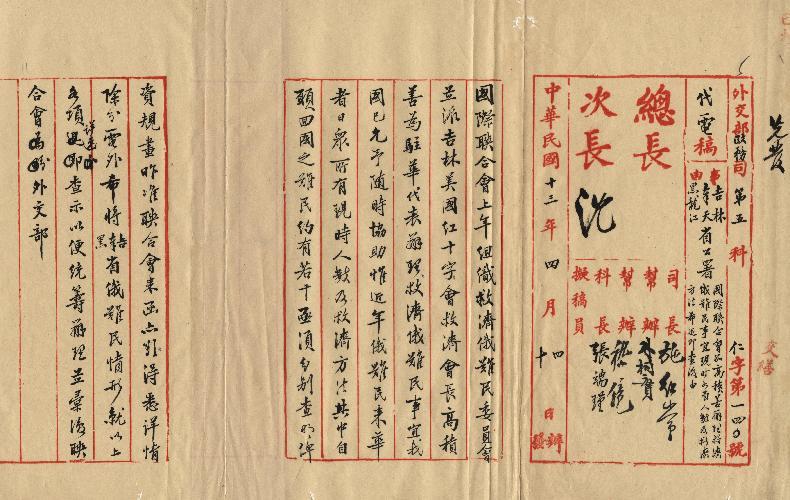 先發
外交部政務司 第五科 仁字第一四〇號
代電稿
事由
吉林
奉天
黑龍江
省公署
總長
次長 沈
司長 施紹常
幫辦
幫辦
科長
擬稿員
張瑞瑾
中華民國十三年四月十四日辦發
國際聯合會上年組織救濟俄難民委員會
並派吉林美國紅十字會救濟會長高積
善為駐華代表辦理救濟俄難民事宜我
國已允予隨時協助惟近年俄難民來華
者日眾所有現時人數及救濟方法其中自
願回國之難民約有若干亟須分別查明俾
資規畫昨准聯合會來函亦詳情
除分電外希將吉黑省俄難民情形就以上
各項詳查示以便統籌辦理並彙復聯
合會為盼外交部